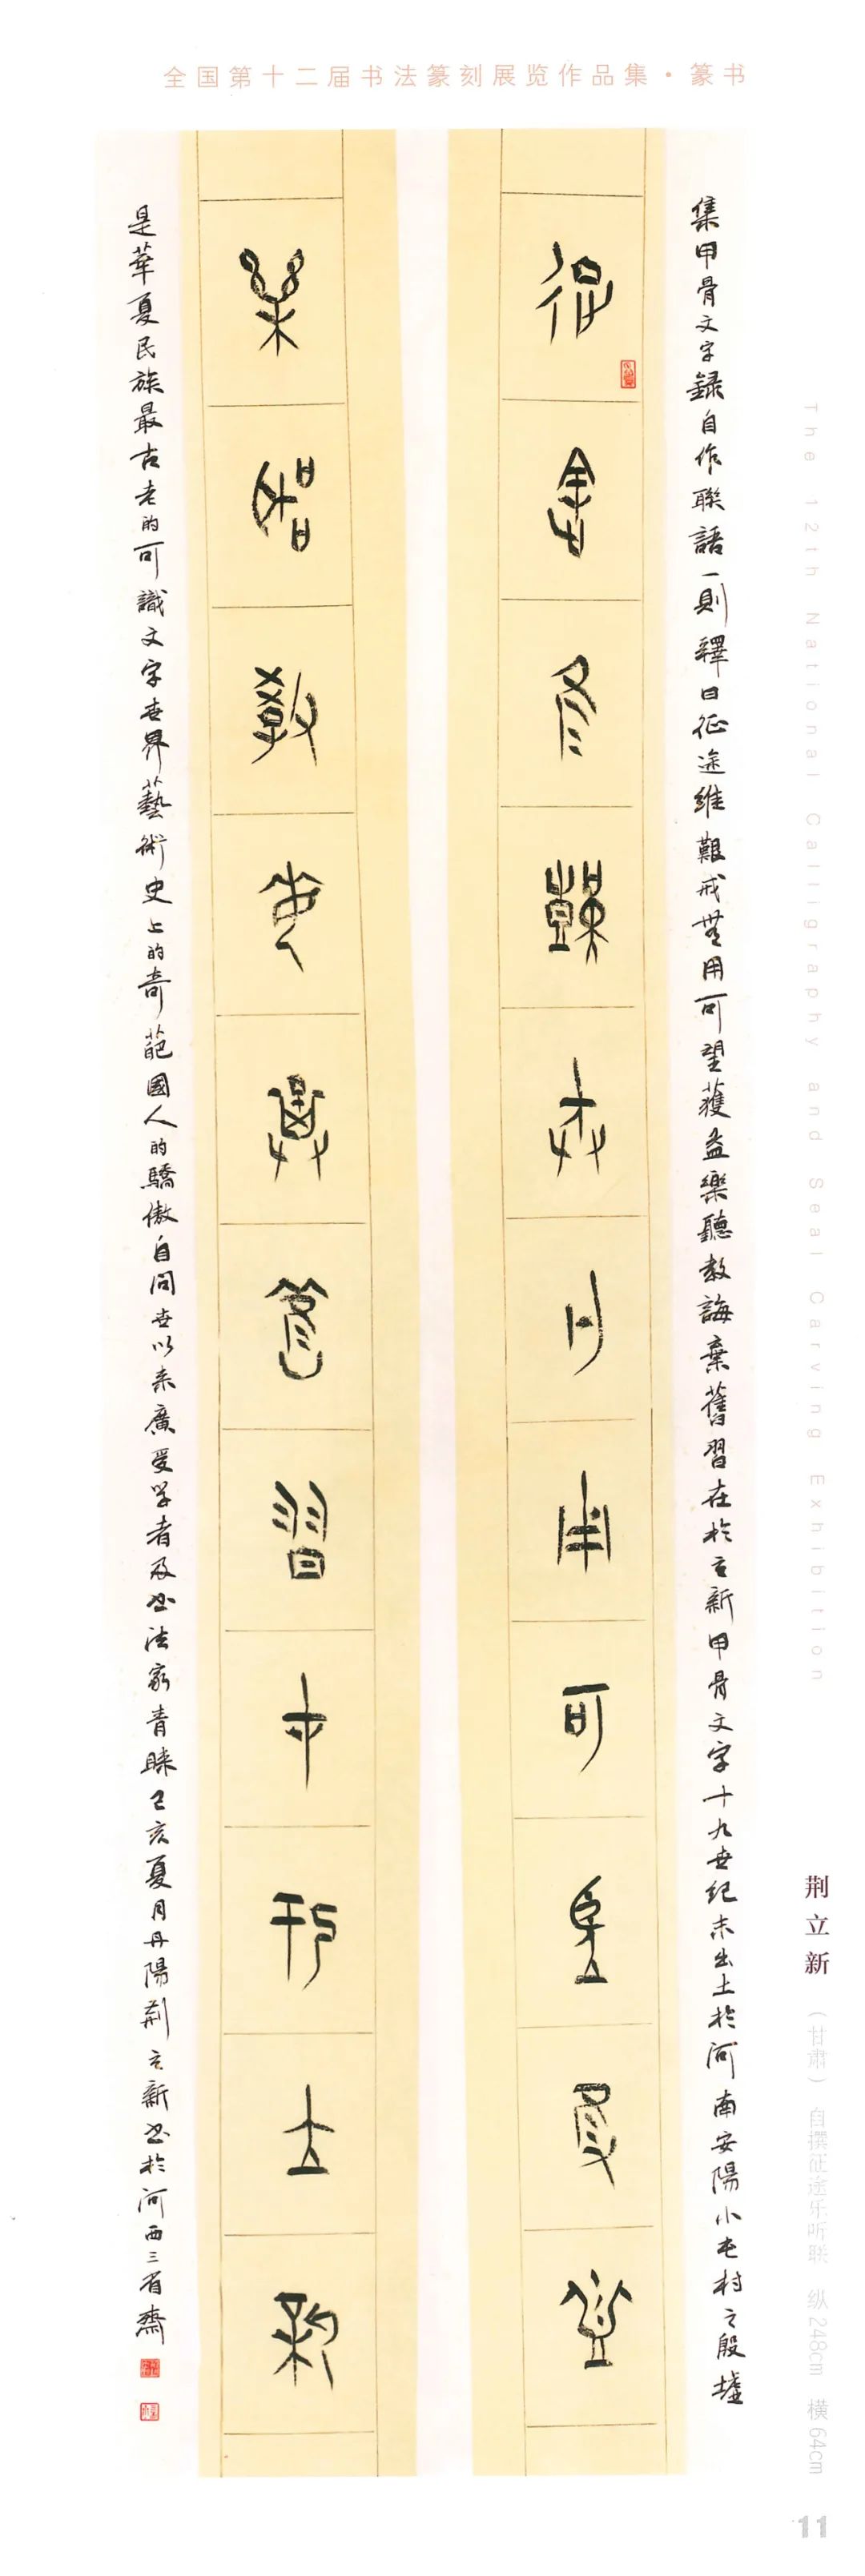 全国第十二届书法篆刻展览作品集·篆书
集甲骨文字録自作聯語一則釋曰征途維艱戒用可望獲益樂聽教誨棄舊習在於立新甲骨文字十九世紀末出土於河南安陽小屯村之殷墟
征途維艱戒用可望獲益
樂聽教誨棄舊習在於立新
是華夏民族最古老的可識文字世界藝術史上的奇葩國人的驕傲自問世以来廣受学者及書法家青睞己亥夏月丹陽荊立新書於河西三省齋
The 12th National Calligraphy and Seal Carving Exhibition
荆立新 （甘肃） 自撰征途乐听联 纵248cm 横64cm
11